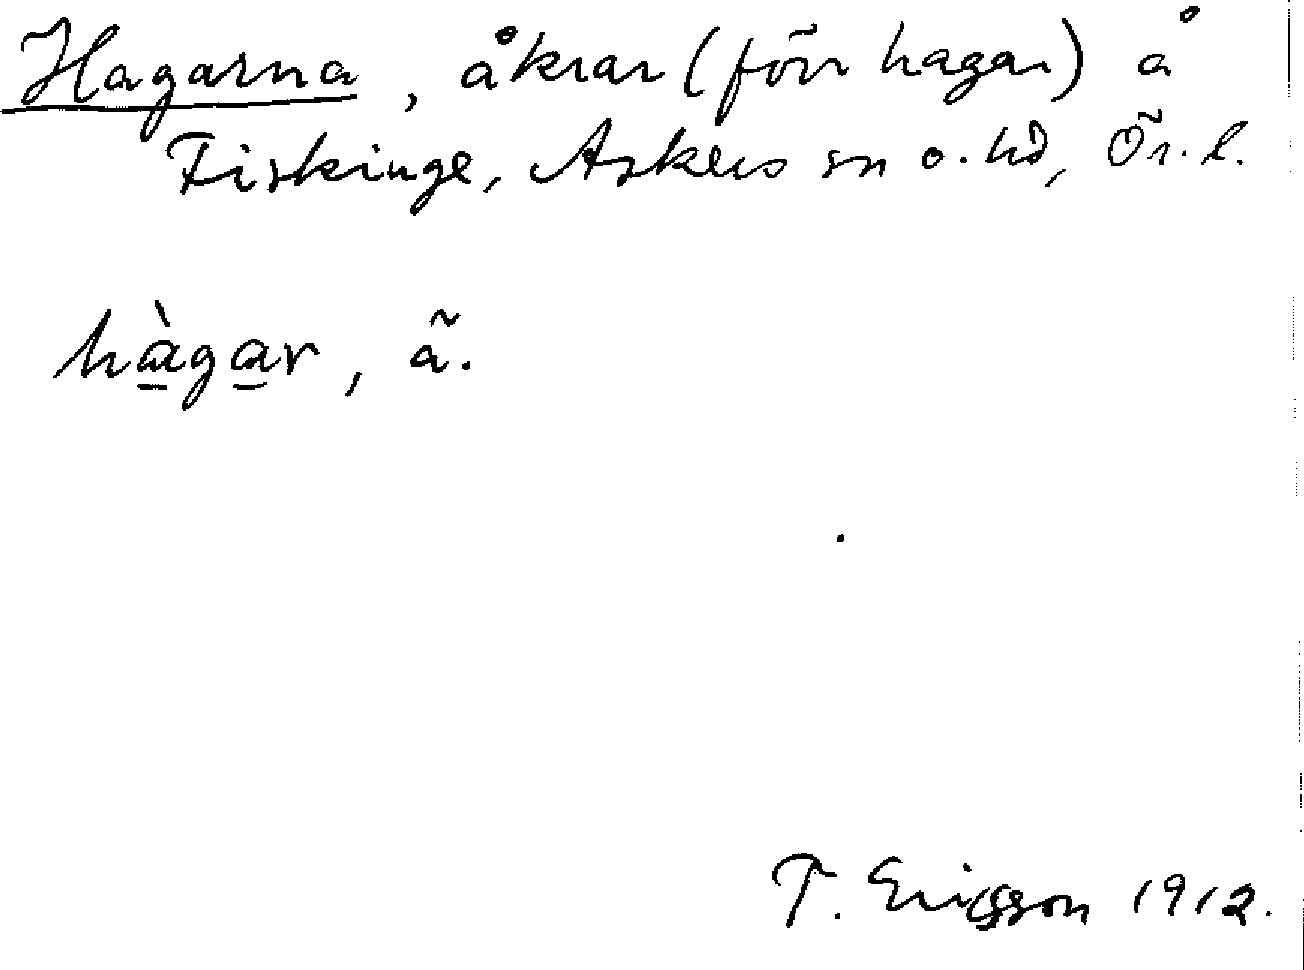 Hagarna, åkrar (förr hagar) å
Fiskinge, Askers sn o. hd, Ör. l.
hàgar, ã.
T. Ericsson 1912.